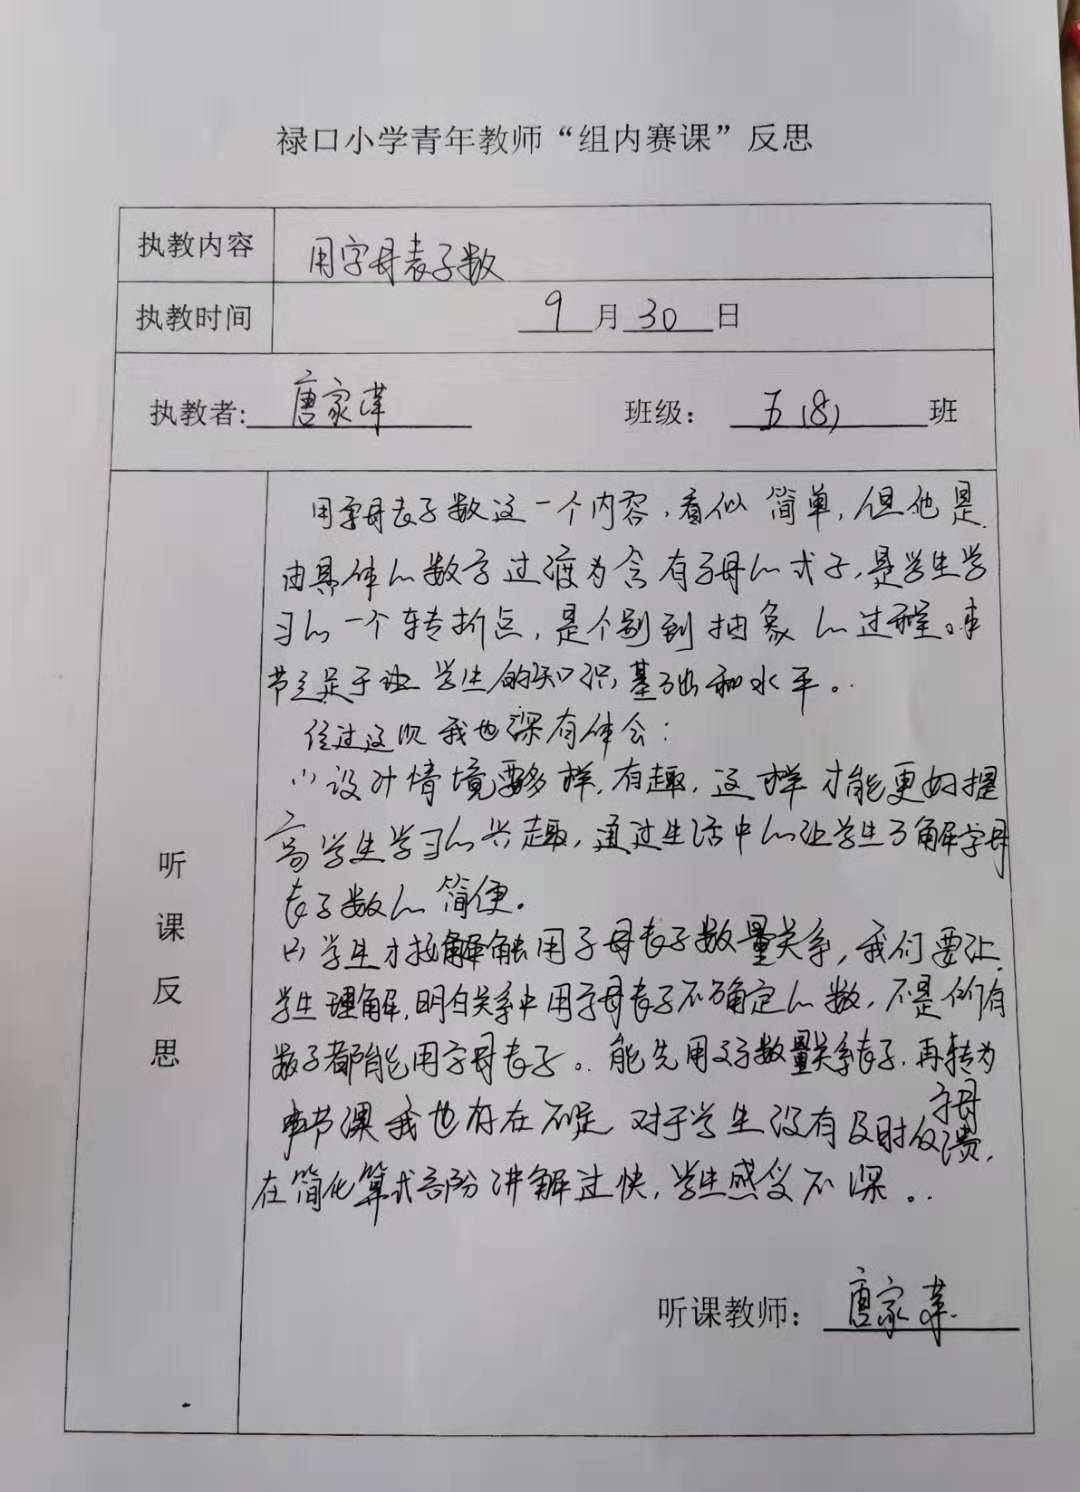 禄口小学青年教师“组内赛课”反思
执教内容 用字母表示数
执教时间 9月30日
执教者: 唐家 班级: 五(8)班
听课反思
用字母表示数这一个内容,看似简单,但他是
由具体的数字过渡为含有字母的式子,是学生学
习的一个转折点,是个别到抽象的过程。本
节立足于 学生的知识基础和水平。
经过这次我也深有体会:
(1)设计情境要多样,有趣,这样才能更好提
高学生学习的兴趣,通过生活中的让学生了解字母
表示数的简便。
(2)学生才接解触用字母表示数量关系,我们要让
学生理解,明白关系中用字母表示不确定的数,不是所有
数字都能用字母表示。能先用文字数量关系表示,再转为
字母
本节课我也存在不足 对于学生没有及时反馈,
在简化算式部分讲解过快,学生感受不深。
听课教师: 唐家